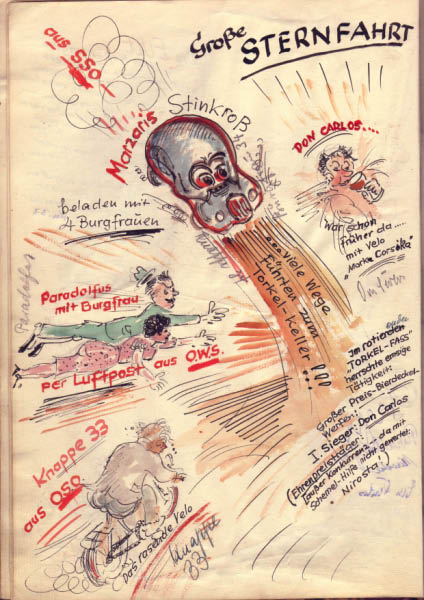 Große
STERNFAHRT
aus SSO
Marzaris
Stinkroß
beladen mit
4 Burgfrauen
DON CARLOS....
war schon
früher da....
mit Velo
"Marke Corsika"
...viele Wege
führten zum
Torkel-Keller
Paradolfus
Paradolfus
mit Burgfrau
per Luftpost aus O.W.S.
Im rotierenden
"TORKEL-FASS"
herrschte emsige
Tätigkeit:
Großer Preis-Bierdeckel-
Werfen:
I. Sieger: Don Carlos
(Ehrenpreisträger:
außer Konkurrenz, da mit
Schemel-Hilfe nicht gewertet:
Nirosta!)
Knappe 33
aus OSO
Das rasende Velo
Knappe
33